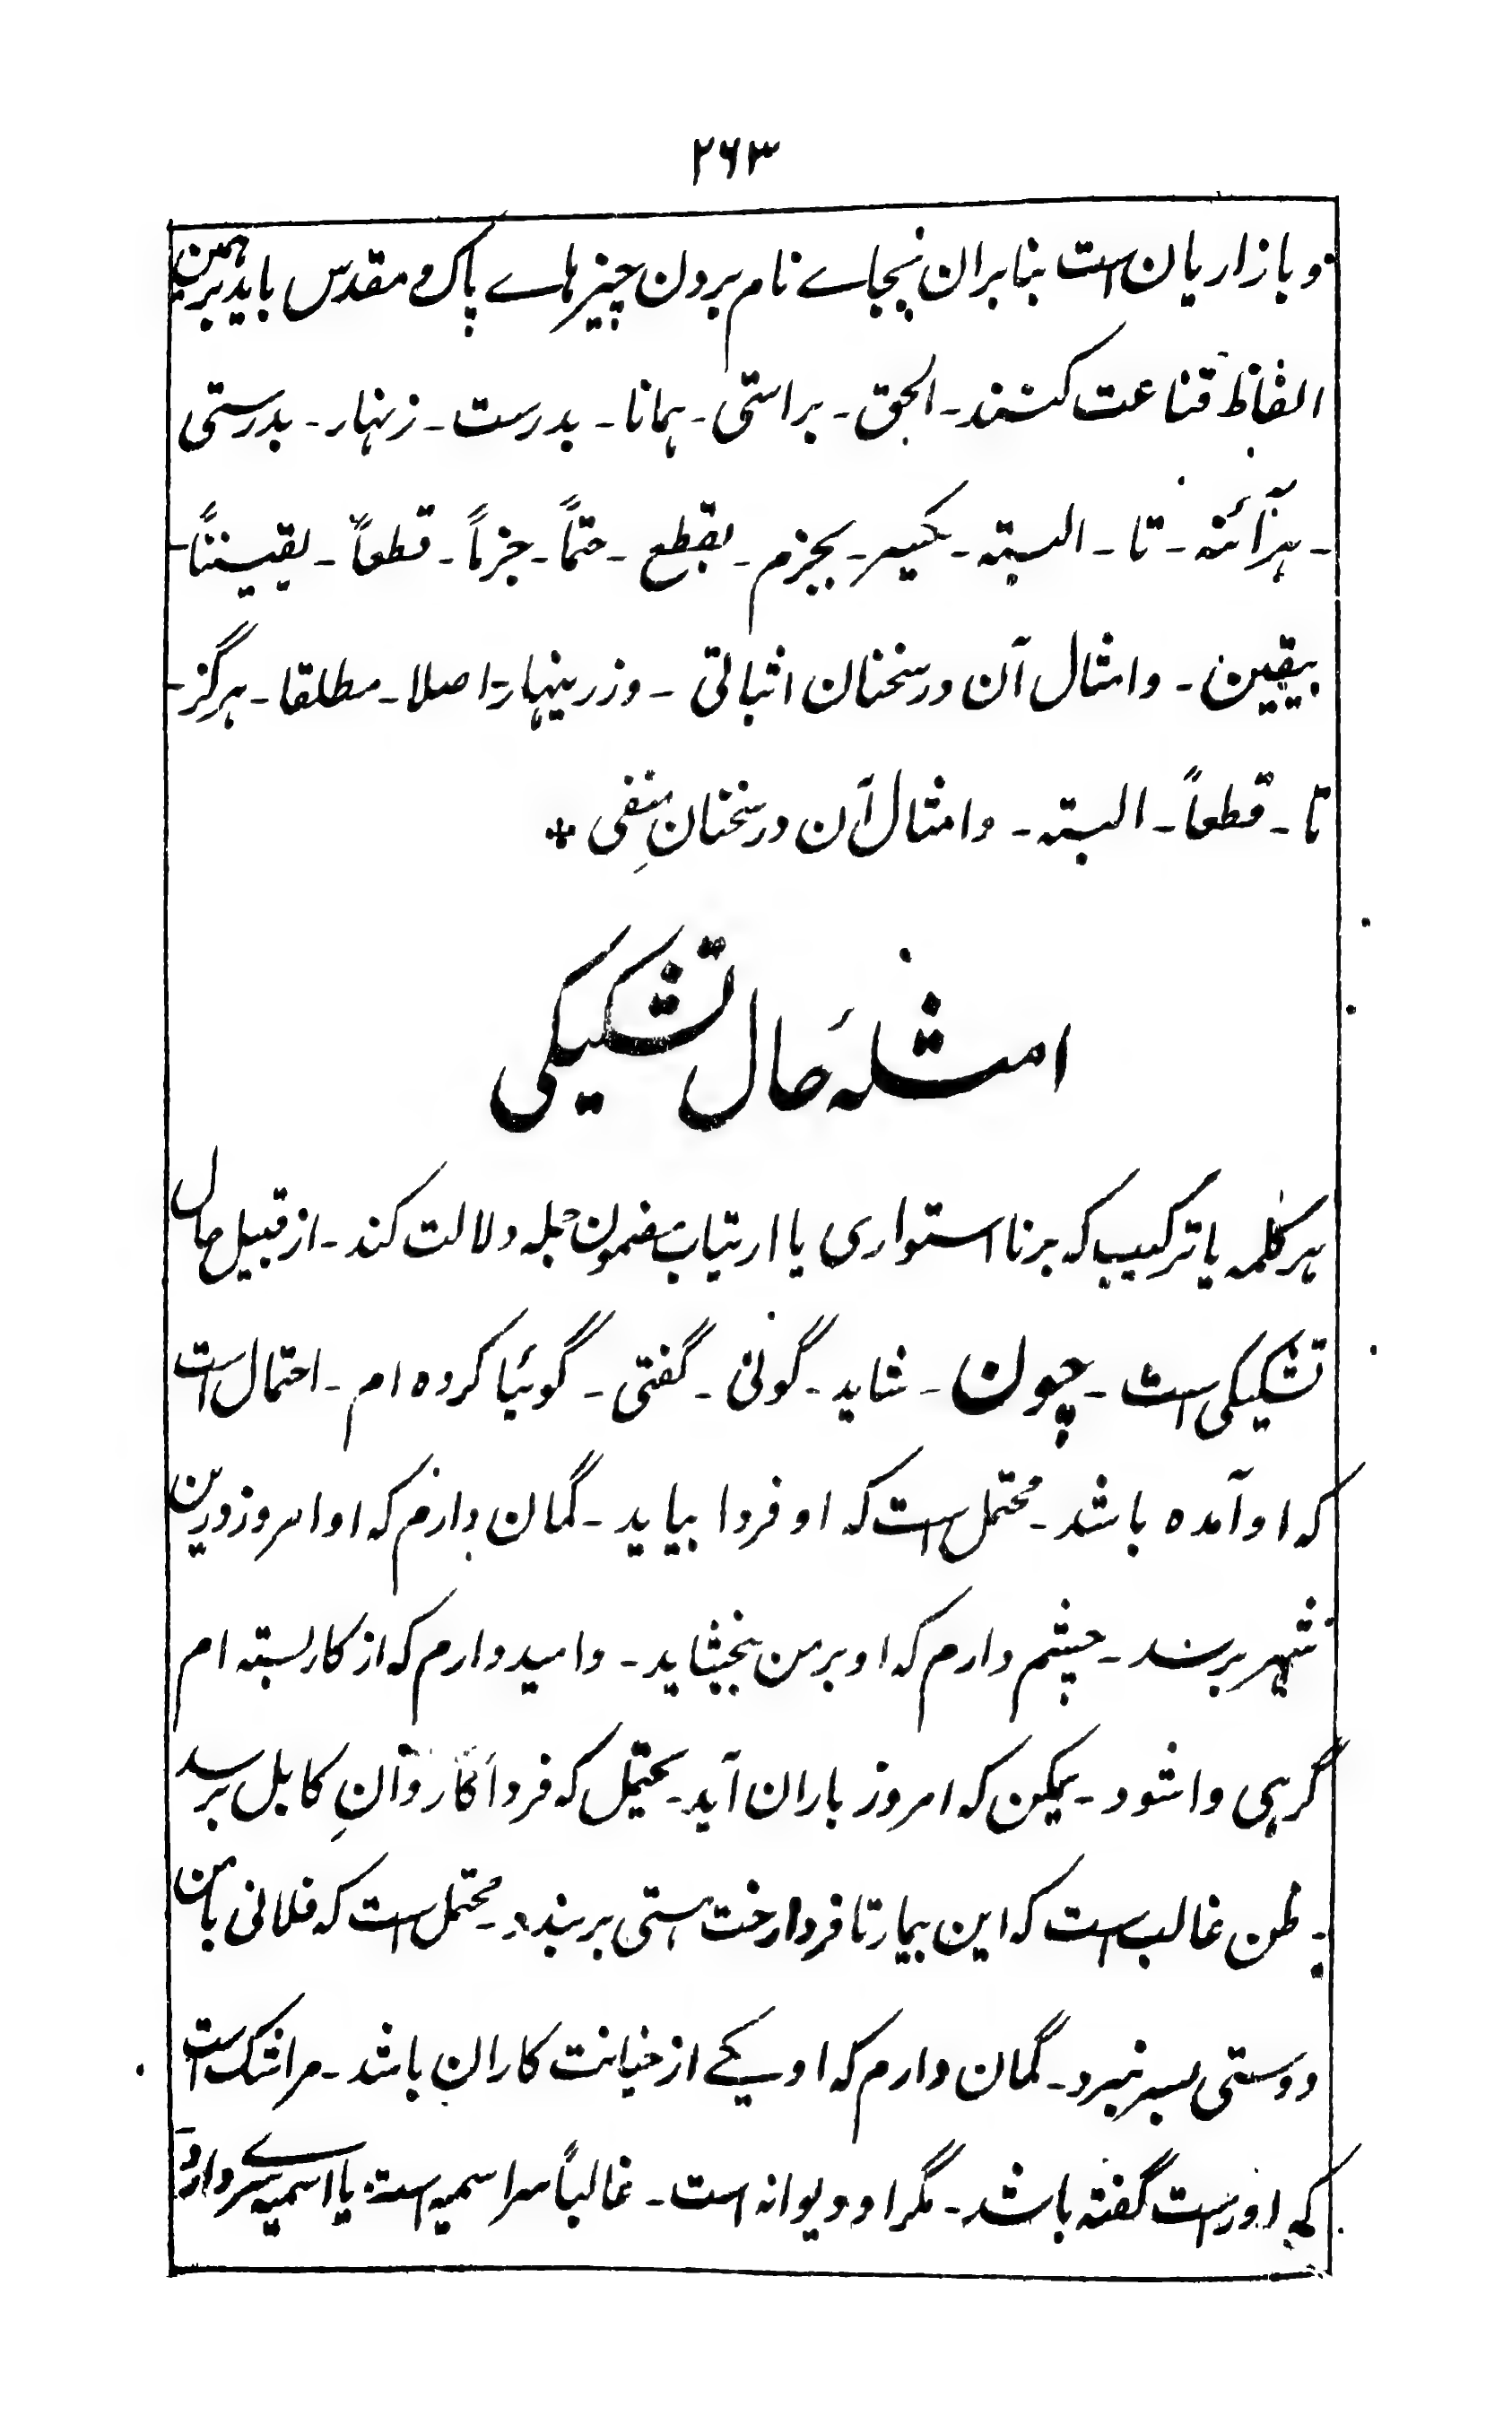 ۲۶۳
و بازاریان است بنابران بجاے نام بردن چیز ہاے پاک و مقدس باید برہمین
الفاظ قناعت کنند ـ الحق ـ براستی ـ ہمانا ـ بدرست ـ زنہار ـ بدرستی
ـ ہرآئنہ ـ تا ـ البتہ ـ یکسر ـ بجزم ـ بقطع ـ حتماً ـ جزماً ـ قطعاً ـ یقیناً ـ
بیقین ـ و امثال آن در سخنان اثباتی ـ و زرینہار ـ اصلا ـ مطلقا ـ ہرگز ـ
تا ـ قطعاً ـ البتہ ـ و امثال آن در سخنانِ منفی *
امثلۂ حال تشکیکی
ہر کلمہ یا ترکیب کہ بر نا استواری یا ارتیاب مضمون جملہ دلالت کند ـ از قبیل حال
تشکیکی است ـ چون ـ شاید ـ گوئی ـ گفتی ـ گوئیا کردہ ام ـ احتمال است
کہ او آمدہ باشد ـ محتمل است کہ او فردا بیاید ـ گمان دارم کہ او امروز درین
شہر برسد ـ چشم دارم کہ او بر من بخشاید ـ و امید دارم کہ از کار بستہ ام
گرہی وا شود ـ یمکن کہ امروز باران آید ـ یحتمل کہ فردا کاروانِ کابل برسد
ـ ظن غالب است کہ این بیمار تا فردا رخت ہستی بر بندد ـ محتمل است کہ فلانی با من
دوستی بسر نبرد ـ گمان دارم کہ او یکے از خیانت کاران باشد ـ مرا شک است
کہ او راست گفتہ باشد ـ مگر او دیوانہ است ـ غالباً سراسمیہ است یا اسمیہ سرے دارد